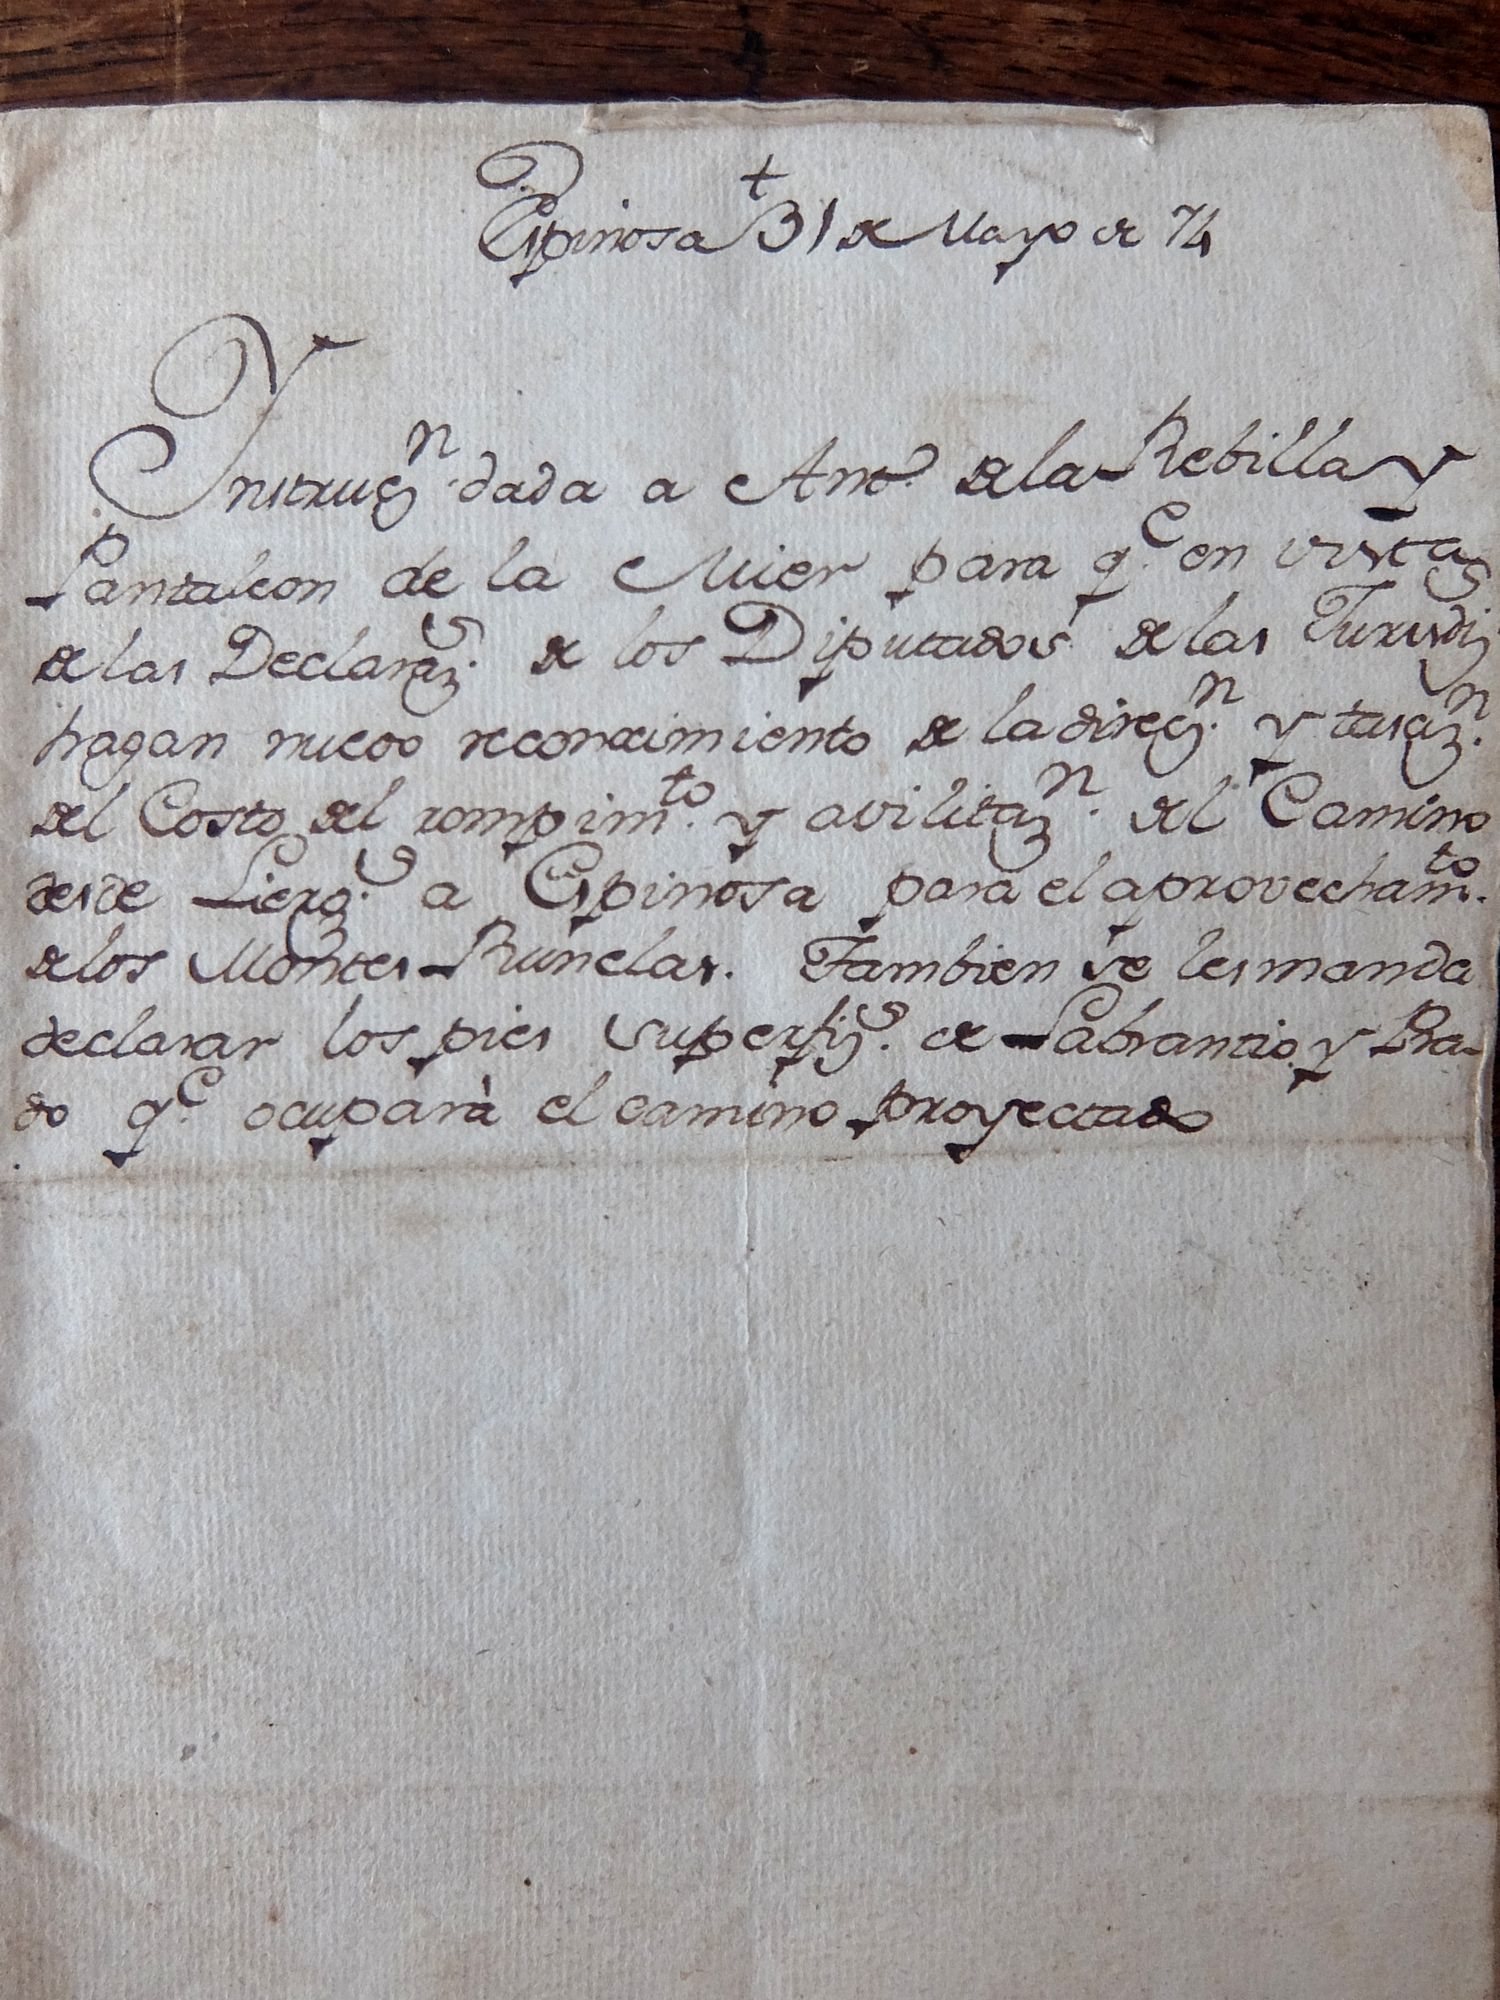 +
Espinosa 31 de Mayo de 74
Ynstrucn. dada a Anto. de la Rebilla y
Pantaleon de la Mier para qe. en vista
de las Declarazs. de los Diputados de las Jurisdizs
hagan nuevo reconocimiento de la direcn. y tasazn.
del Costo del rompimto. y avilitazn. del Camino
desde Lierganes a Espinosa para el aprovechamto.
de los Montes Bunelas. Tambien se les manda
declarar los pies superfizs. de Labrantio y Pra-
do qe. ocuparà el camino proyectado